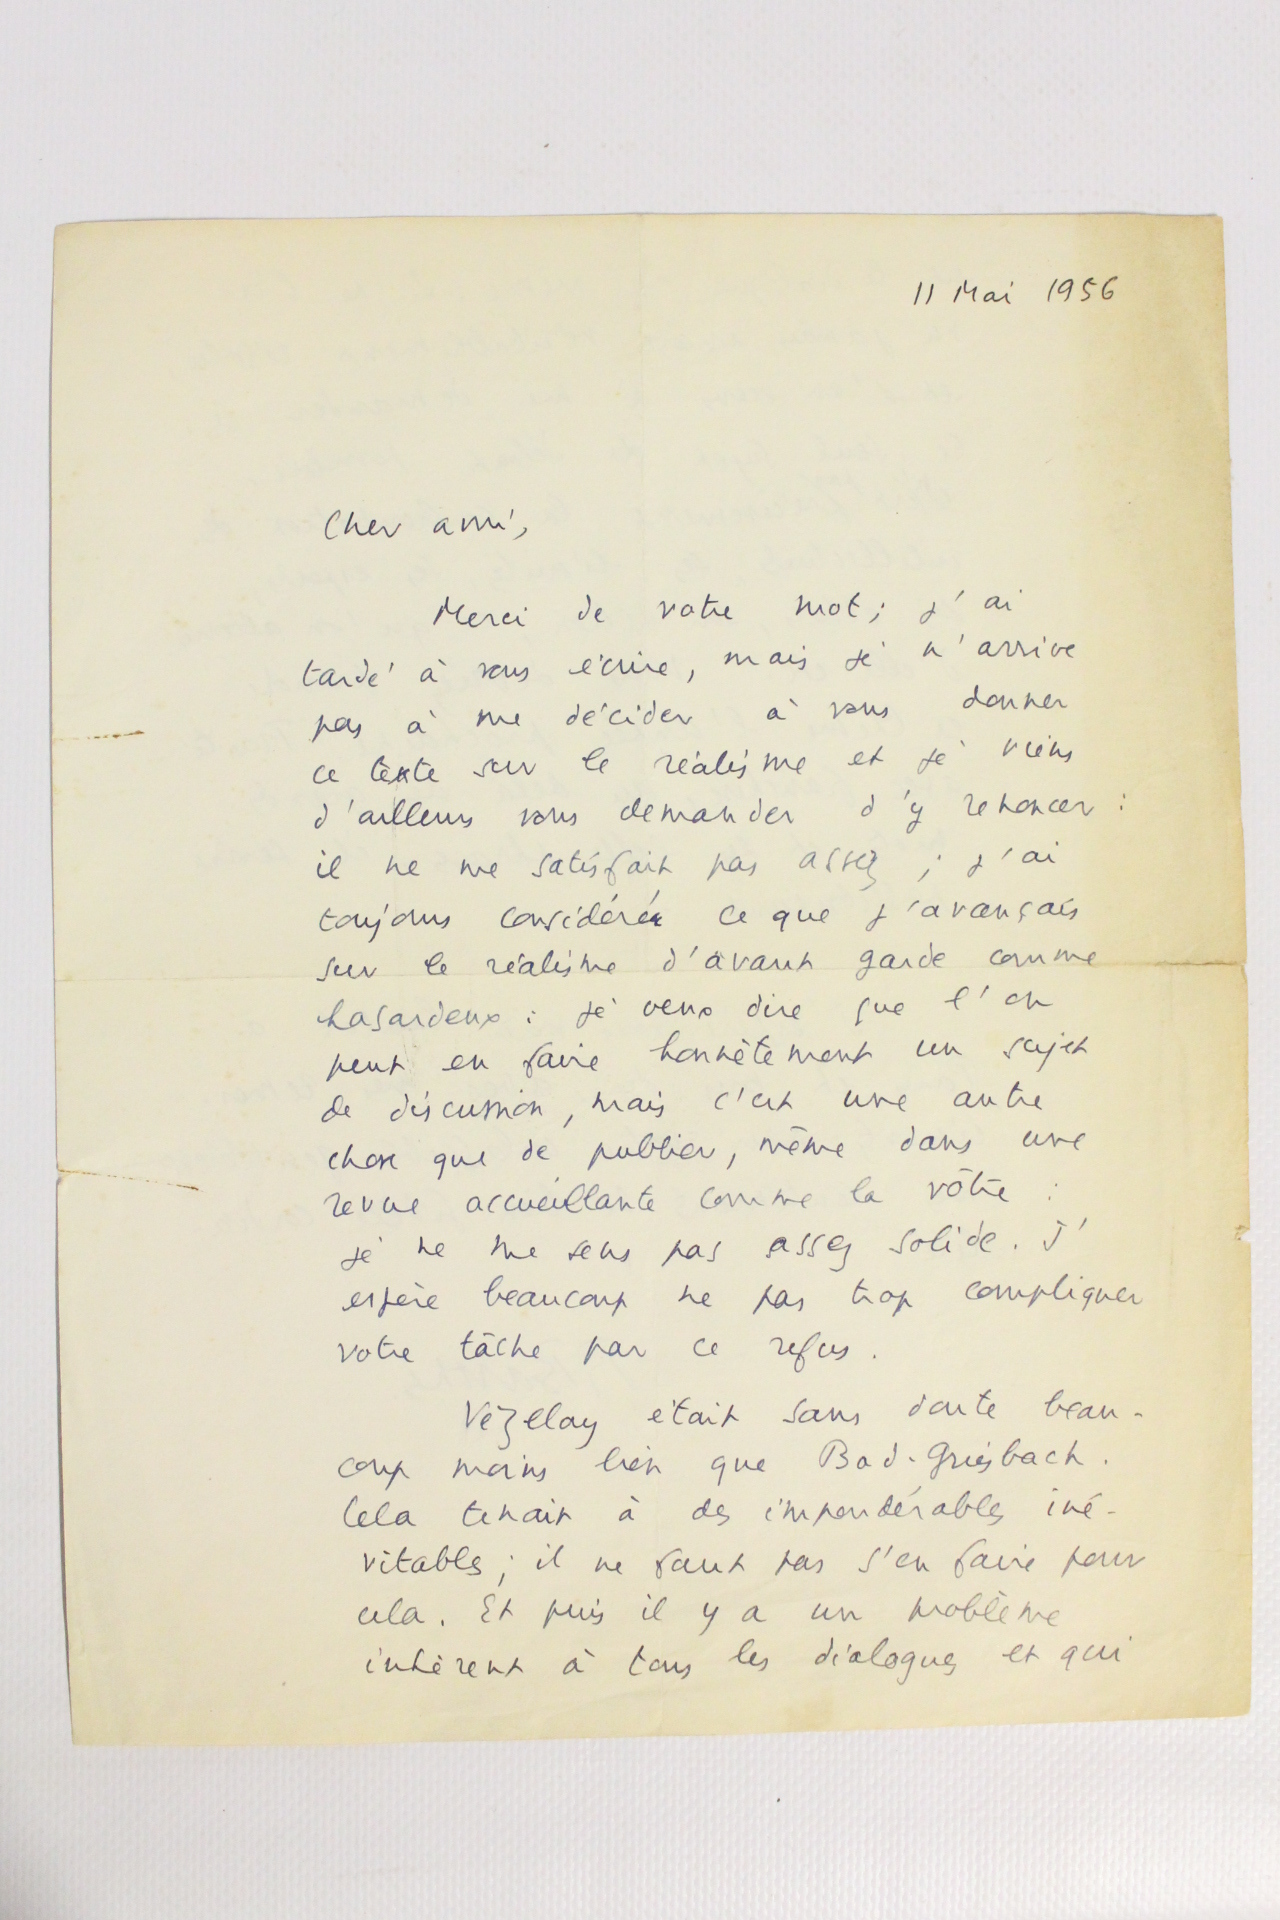 11 Mai 1956
Cher ami,
Merci de votre mot; j'ai
tardé à vous écrire, mais je n'arrive
pas à me décider à vous donner
ce texte sur le réalisme et je viens
d'ailleurs vous demander d'y renoncer :
il ne me satisfait pas assez ; j'ai
toujours considéré ce que j'avançais
sur le réalisme d'avant garde comme
hasardeux : je veux dire que l'on
peut en faire honnêtement un sujet
de discussion, mais c'est une autre
chose que de publier, même dans une
revue accueillante comme la vôtre :
je ne me sens pas assez solide. J'
espère beaucoup ne pas trop compliquer
votre tâche par ce refus.
Vézelay était sans doute beau-
coup moins bien que Bad-Griesbach.
Cela tenait à des impondérables iné-
vitables ; il ne faut pas s'en faire pour
cela. Et puis il y a un problème
inhérent à tous les dialogues et qui